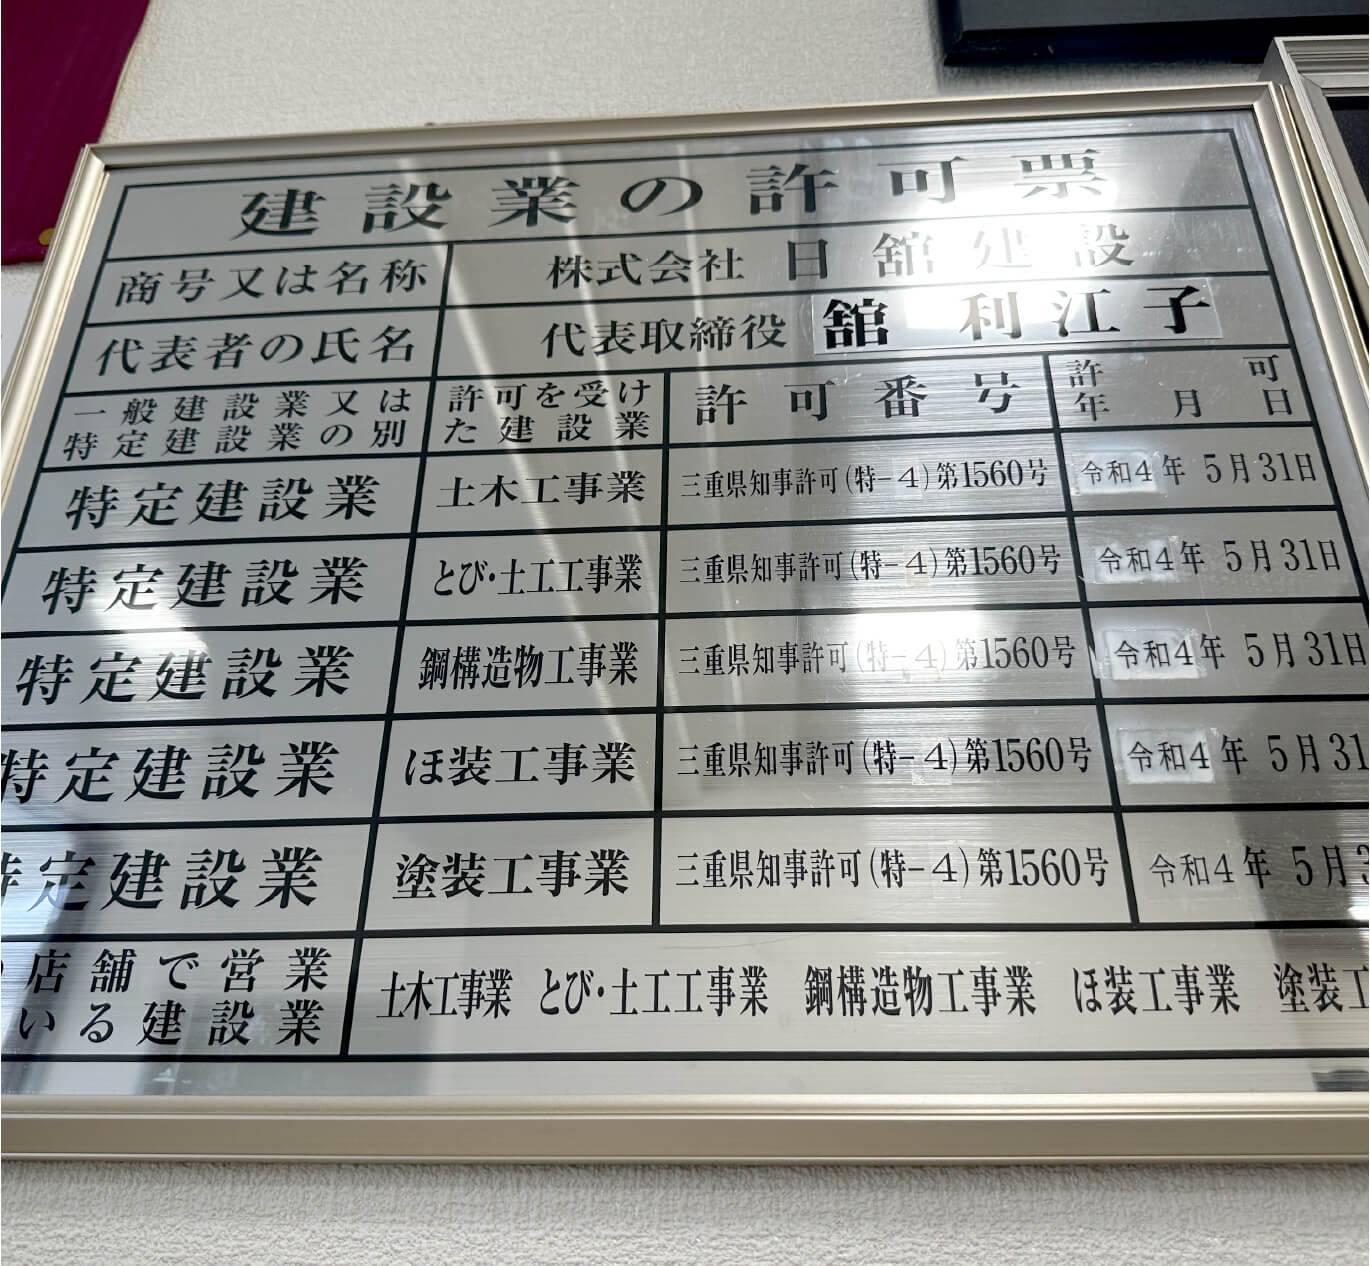 建設業の許可票
商号又は名称 株式会社 日舘建設
代表者の氏名 代表取締役 舘 利江子
一般建設業又は
特定建設業の別
許可を受け
た建設業
許可番号
許可
年月日
特定建設業 土木工事業 三重県知事許可(特-4)第1560号 令和4年 5月31日
特定建設業 とび・土工工事業 三重県知事許可(特-4)第1560号 令和4年 5月31日
特定建設業 鋼構造物工事業 三重県知事許可(特-4)第1560号 令和4年 5月31日
特定建設業 ほ装工事業 三重県知事許可(特-4)第1560号 令和4年 5月31
特定建設業 塗装工事業 三重県知事許可(特-4)第1560号 令和4年 5月3
店舗で営業
いる建設業
土木工事業 とび・土工工事業 鋼構造物工事業 ほ装工事業 塗装工